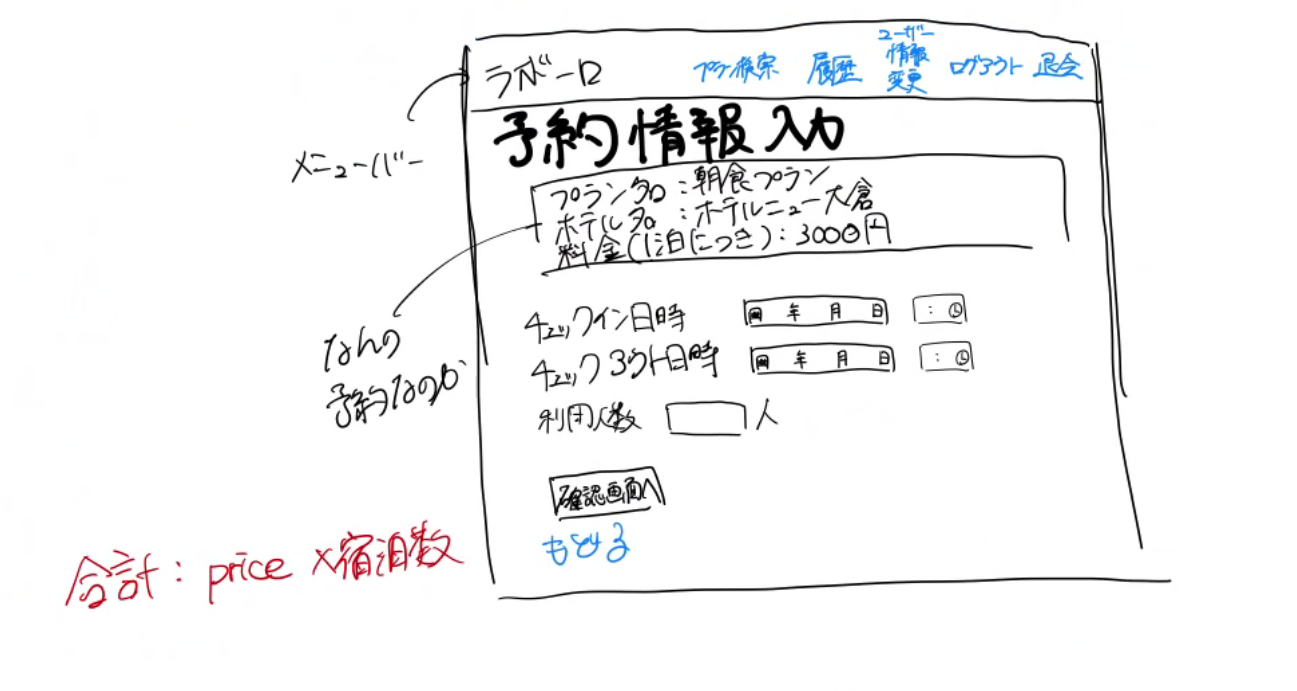 ラボーロ プラン検索 履歴 ユーザー情報変更 ログアウト 退会
メニューバー
予約情報入力
プラン名:朝食プラン
ホテル名:ホテルニュー大倉
料金(1泊につき):3000円
なんの
予約なのか
チェックイン日時 年 月 日 :
チェックアウト日時 年 月 日 :
利用人数 人
確認画面へ
もどる
合計:price×宿泊数